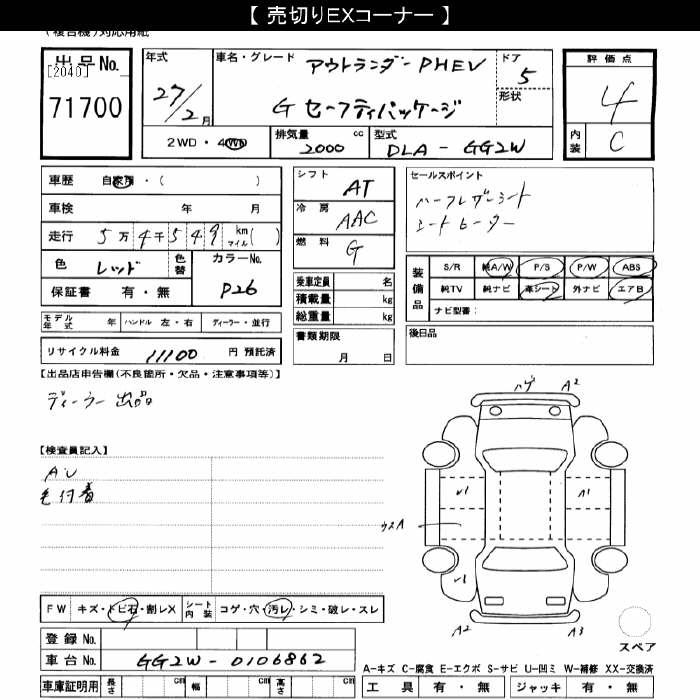 【 売切りEXコーナー 】
(複合機)対応用紙
出品No.
[2040]
71700
年式
27/2月
車名・グレード アウトランダーPHEV
G セーフティパッケージ
ドア
5
形状
評価点
4
内装 C
2WD・4WD
排気量 cc
2000
型式
DLA - GG2W
車歴 自家用・( )
車検 年 月
走行 5万4千549 km マイル( )
色 レッド 色替 カラーNo.
P26
保証書 有・無
モデル年式 年 ハンドル 左・右 ディーラー・並行
リサイクル料金 11100 円 預託済
シフト AT
冷房 AAC
燃料 G
乗車定員 名
積載量 kg
総重量 kg
書類期限
月 日
セールスポイント
ハーフレザーシート
シートヒーター
装備品
S/R 純A/W P/S P/W ABS
純TV 純ナビ 革シート 外ナビ エアB
ナビ型番:
後日品
【出品店申告欄(不良箇所・欠品・注意事項等)】
ディーラー出品
【検査員記入】
A・U
毛付着
ハゲ A2
U1 A1
ウスA
U1
A2 A3
スペア
FW キズ・トビ石・割レX シート内装 コゲ・穴・汚レ・シミ・破レ・スレ
登録No.
車台No. GG2W-0106862
車庫証明用 長さ cm 幅 cm 高さ cm
A-キズ C-腐食 E-エクボ S-サビ U-凹ミ W-補修 XX-交換済
工具 有・無 ジャッキ 有・無